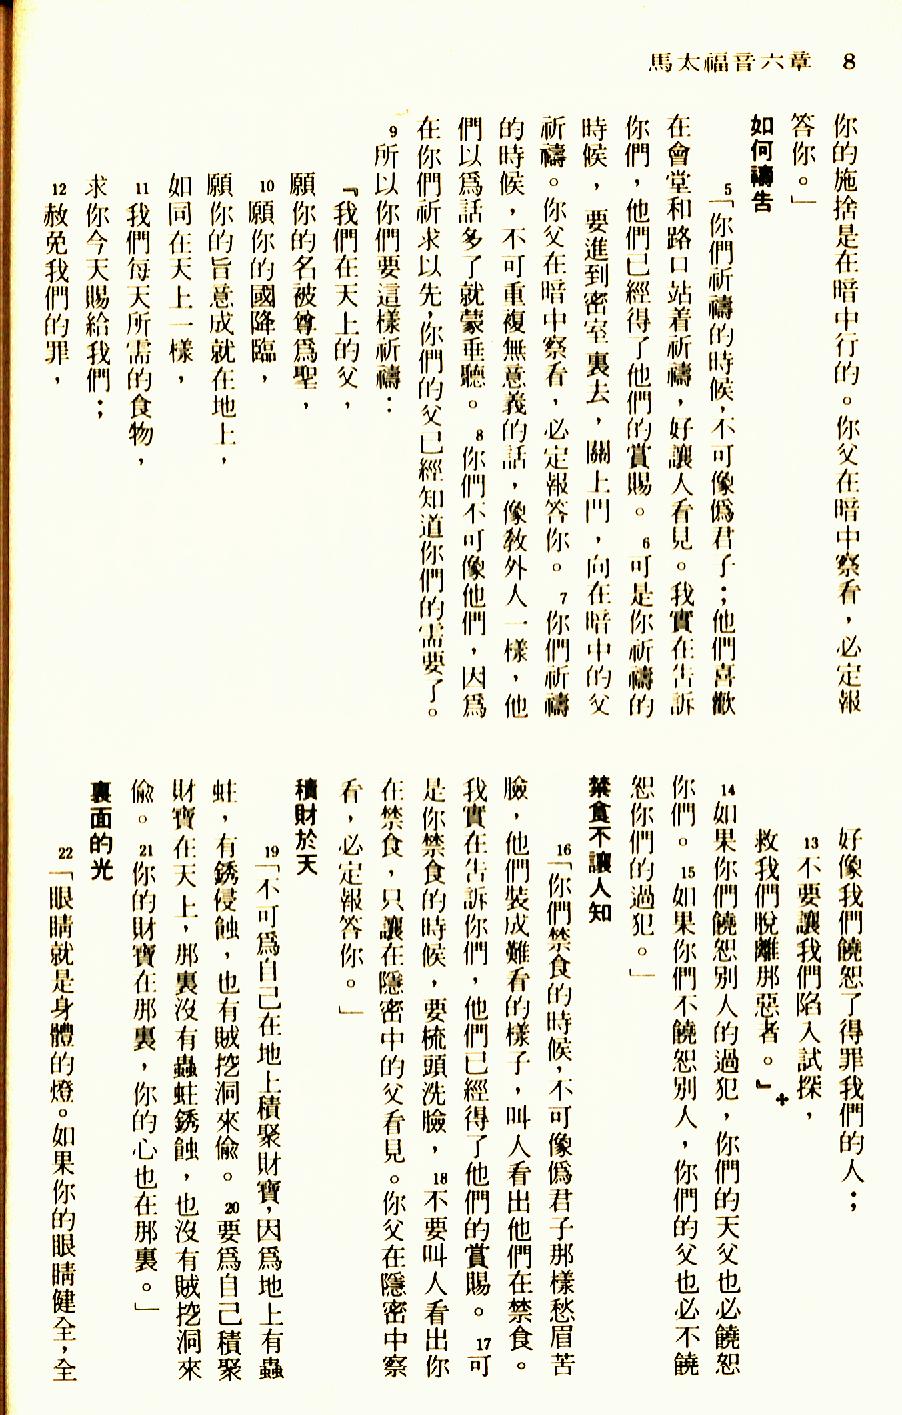 馬太福音六章 8
你的施捨是在暗中行的。你父在暗中察看，必定報
答你。」
如何禱告
5「你們祈禱的時候，不可像僞君子；他們喜歡
在會堂和路口站着祈禱，好讓人看見。我實在告訴
你們，他們已經得了他們的賞賜。6可是你祈禱的
時候，要進到密室裏去，關上門，向在暗中的父
祈禱。你父在暗中察看，必定報答你。7你們祈禱
的時候，不可重複無意義的話，像教外人一樣，他
們以爲話多了就蒙垂聽。8你們不可像他們，因爲
在你們祈求以先，你們的父已經知道你們的需要了。
9所以你們要這樣祈禱：
『我們在天上的父，
願你的名被尊爲聖，
10願你的國降臨，
願你的旨意成就在地上，
如同在天上一樣，
11我們每天所需的食物，
求你今天賜給我們；
12赦免我們的罪，
好像我們饒恕了得罪我們的人；
13不要讓我們陷入試探，
救我們脫離那惡者。』✢
14如果你們饒恕別人的過犯，你們的天父也必饒恕
你們。15如果你們不饒恕別人，你們的父也必不饒
恕你們的過犯。」
禁食不讓人知
16「你們禁食的時候，不可像僞君子那樣愁眉苦
臉，他們裝成難看的樣子，叫人看出他們在禁食。
我實在告訴你們，他們已經得了他們的賞賜。17可
是你禁食的時候，要梳頭洗臉，18不要叫人看出你
在禁食，只讓在隱密中的父看見。你父在隱密中察
看，必定報答你。」
積財於天
19「不可爲自己在地上積聚財寶，因爲地上有蟲
蛀，有銹侵蝕，也有賊挖洞來偷。20要爲自己積聚
財寶在天上，那裏沒有蟲蛀銹蝕，也沒有賊挖洞來
偷。21你的財寶在那裏，你的心也在那裏。」
裏面的光
22「眼睛就是身體的燈。如果你的眼睛健全，全